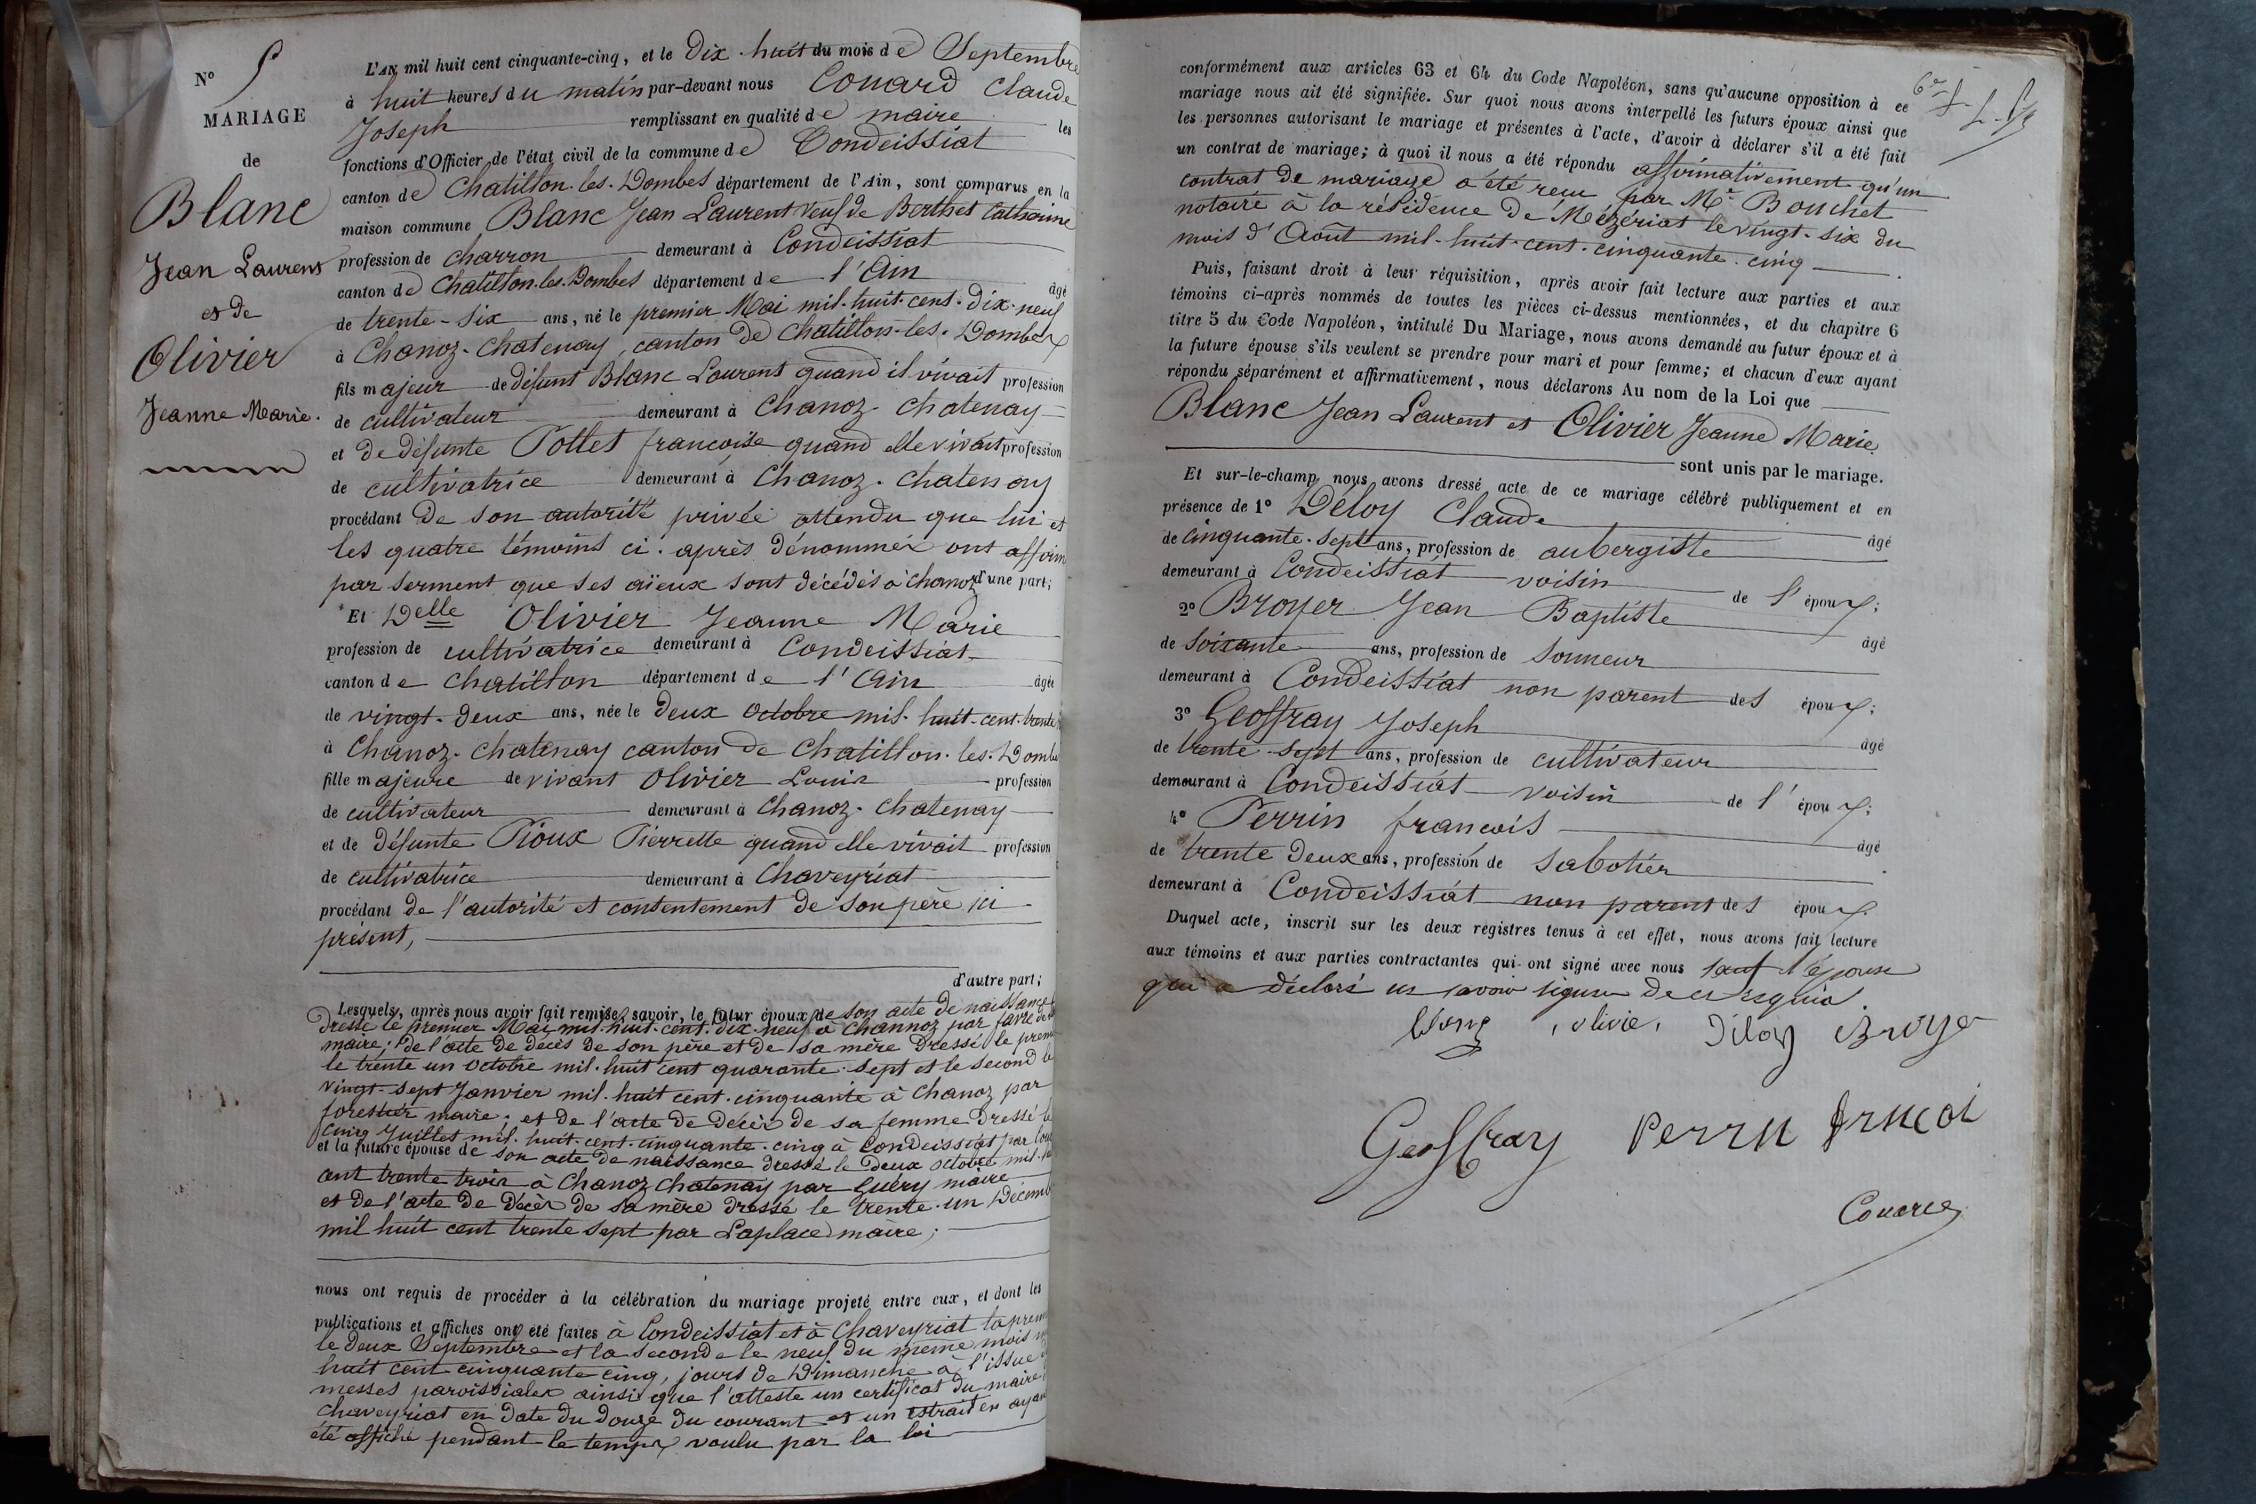 N° 5
MARIAGE
de
Blanc
Jean Laurent
et de
Olivier
Jeanne Marie.
L'AN mil huit cent cinquante-cinq, et le Dix-huit du mois de Septembre
à huit heures du matin par-devant nous Couard Claude
Joseph remplissant en qualité de maire les
fonctions d'Officier de l'état civil de la commune de Condeissiat
canton de Chatillon-les-Dombes département de l'Ain, sont comparus en la
maison commune Blanc Jean Laurent veuf de Berthet Catherine
profession de charron demeurant à Condeissiat
canton de Chatillon-les-Dombes département de l'Ain âgé
de trente-six ans, né le premier Mai mil-huit-cent-dix-neuf
à Chanoz-Chatenay, canton de Chatillon-les-Dombes
fils majeur de défunt Blanc Laurent quand il vivait profession
de cultivateur demeurant à Chanoz-Chatenay
et de défunte Pollet françoise quand elle vivait profession
de cultivatrice demeurant à Chanoz-Chatenay
procédant de son autorité privée attendu que lui et
les quatre témoins ci-après dénommés ont affirm
par serment que ses aïeux sont décédés à Chanoz d'une part;
Et Delle Olivier Jeanne Marie
profession de cultivatrice demeurant à Condeissiat
canton de Chatillon département de l'Ain âgée
de vingt-deux ans, née le deux octobre mil-huit-cent-trente
à Chanoz-Chatenay canton de Chatillon-les-Dombe
fille majeure de vivant Olivier Louis profession
de cultivateur demeurant à Chanoz-Chatenay
et de défunte Pioux Pierrette quand elle vivait profession
de cultivatrice demeurant à Chaveyriat
procédant de l'autorité et consentement de son père ici
présent,
d'autre part;
Lesquels, après nous avoir fait remise, savoir, le futur époux de son acte de naissance
dressé le premier Mai mil-huit-cent-dix-neuf à Channoz par favre
maire; de l'acte de décès de son père et de sa mère dressé le prem
le trente un octobre mil-huit cent quarante-sept et le second le
vingt-sept Janvier mil-huit cent-cinquante à Chanoz par
forestier maire; et de l'acte de décès de sa femme dressé le
cinq Juillet mil-huit-cent-cinquante-cinq à Condeissiat par Cou
et la future épouse de son acte de naissance dressé le deux octobre mil-hu
cent trente trois à Chanoz Chatenay par Guéry maire
et de l'acte de décès de sa mère dressé le trente-un Décemb
mil huit cent trente sept par Laplace maire;
nous ont requis de procéder à la célébration du mariage projeté entre eux, et dont les
publications et affiches ont été faites à Condeissiat et à Chaveyriat la prem
le deux Septembre et la seconde le neuf du même mois m
huit cent cinquante cinq, jours de Dimanche à l'issue
messes paroissiales ainsi que l'atteste un certificat du maire
Chaveyriat en date du douze du courant et un extrait en ayan
été affiché pendant le temps voulu par la loi
conformément aux articles 63 et 64 du Code Napoléon, sans qu'aucune opposition à ce
mariage nous ait été signifiée. Sur quoi nous avons interpellé les futurs époux ainsi que
les personnes autorisant le mariage et présentes à l'acte, d'avoir à déclarer s'il a été fait
un contrat de mariage; à quoi il nous a été répondu affirmativement qu'un
contrat de mariage a été reçu par Me Bouchet
notaire à la résidence de Mézériat le vingt-six du
mois d'Août mil-huit-cent-cinquante-cinq
Puis, faisant droit à leur réquisition, après avoir fait lecture aux parties et aux
témoins ci-après nommés de toutes les pièces ci-dessus mentionnées, et du chapitre 6
titre 5 du Code Napoléon, intitulé Du Mariage, nous avons demandé au futur époux et à
la future épouse s'ils veulent se prendre pour mari et pour femme; et chacun d'eux ayant
répondu séparément et affirmativement, nous déclarons Au nom de la Loi que
Blanc Jean Laurent et Olivier Jeanne Marie
sont unis par le mariage.
Et sur-le-champ nous avons dressé acte de ce mariage célébré publiquement et en
présence de 1° Déloy Claude âgé
de cinquante-sept ans, profession de aubergiste
demeurant à Condeissiat voisin de l'époux;
2° Broyer Jean Baptiste âgé
de soixante ans, profession de sonneur
demeurant à Condeissiat non parent des époux;
3° Geoffray Joseph âgé
de trente-sept ans, profession de cultivateur
demeurant à Condeissiat voisin de l'époux;
4° Perrin françois âgé
de trente deux ans, profession de sabotier
demeurant à Condeissiat non parent des époux.
Duquel acte, inscrit sur les deux registres tenus à cet effet, nous avons fait lecture
aux témoins et aux parties contractantes qui ont signé avec nous sauf l'épouse
qui a déclaré ne savoir signer de ce requise.
blanc olivie Déloy Broye
Geoffray Perrin frncoi
Couard